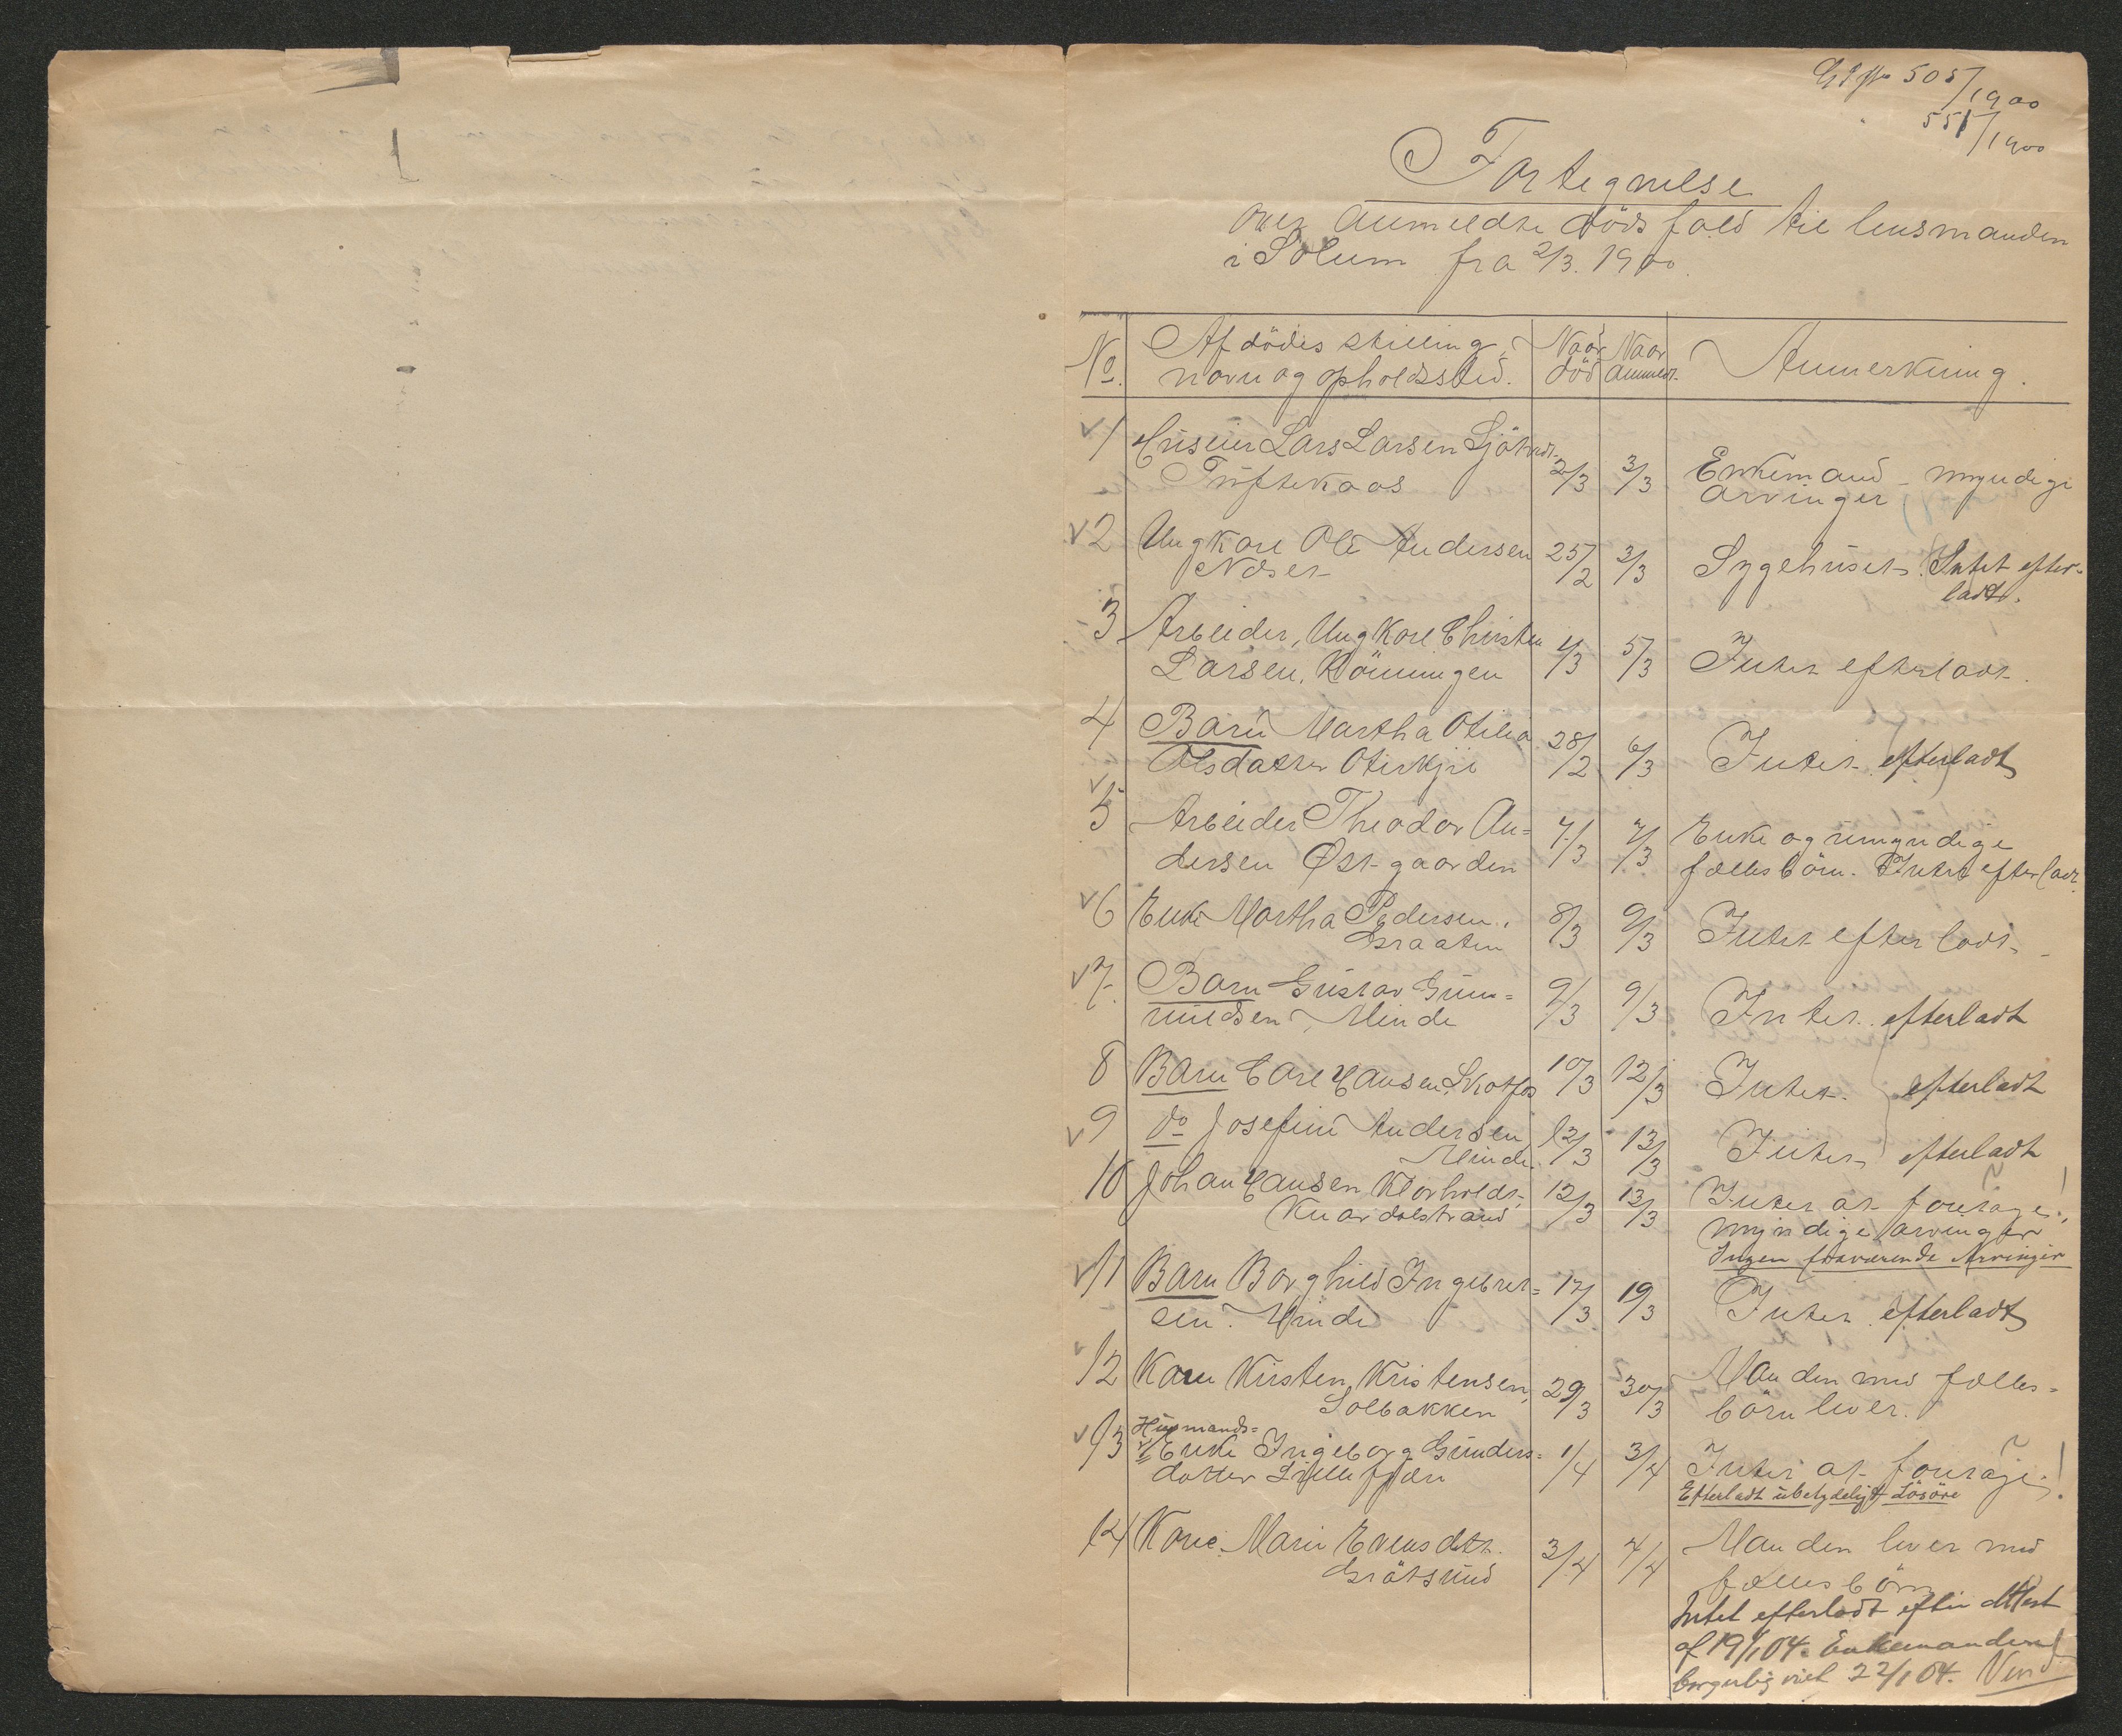 505/1900
551/1900
Fortegnelse
over anmeldte dödsfald til lensmanden
i Solum fra 2/3. 1900.
No. Afdödes stilling, navn og opholdssted. Naar död Naar anmeldt Anmerkning.
1 Huseier Lars Larsen
Tuftekaas 2/3 3/3 Enkemand - myndige
arvinger
2 Ungkarl Ole Andersen 25/2 3/3 Sygehuset. Intet efter-
Næset ladt.
3 Arbeider, Ungkarl Christen 4/3 5/3
Larsen, Klövningen Intet efterladt.
4 Barn Martha Otilia 28/2 6/3 Intet efterladt
Olsdatter
5 Arbeider Theodor An= 7/3 7/3 Enke og umyndige
dersen Østgaarden fællesbörn. Intet efterladt.
6 Enke Martha Pedersen, 8/3 9/3 Intet efterladt.
Braaten
7. Barn Gustav Gun= 9/3 9/3 Intet. efterladt
nuldsen, Minde
8 Barn Carl Hansen, Skotfos 10/3 12/3 Intet. efterladt
9 do Josefine Andersen 12/3 13/3 Intet efterladt
Minde.
10 Johan Hansen Klovholdt, 12/3 13/3 Intet at foretage!
Knardalstrand myndige arvinger
Ingen fraværende Arvinger
11 Barn Borghild Ingebret= 17/3 19/3 Intet. efterladt
sen. Minde
12 Kone Kirsten Kristensen, 29/3 30/3 Manden med fælles=
Solbakken börn lever.
Husmands=
13 Enke Ingeborg Gunders= 1/4 3/4 Intet at foretage!
datter Lillefjære
Efterladt ubetydeligt Lösöre
14 Kone Marie Evensdtr. 3/4 4/4 Manden lever med
Grötsund fællesbörn
Intet efterladt efter Attest
af 19/1 04. Enkemanden
borgerlig viet 22/1 04. Vend